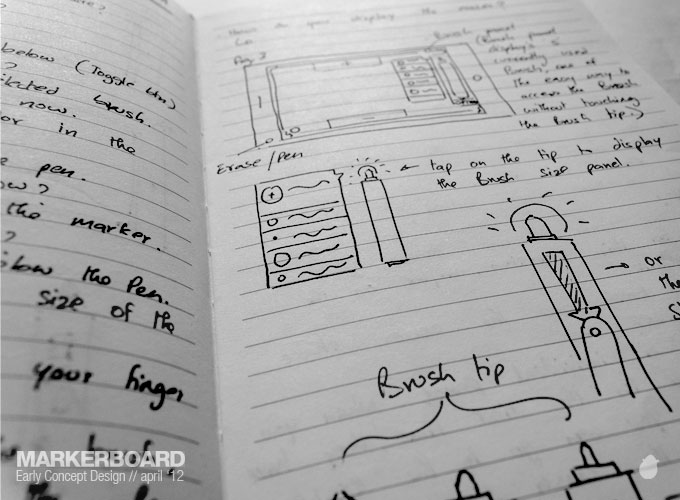 below (Toggle btn)
?
brush.
now.
or in the
pen.
?
the marker.
?
the Pen.
size of the
your finger
How do you display the
Brush panel
(Brush panel
displays 5
currently used
Brush, one of
the easy way to
access the Brush
without touching
the Brush tip.)
Erase/pen
← tap on the tip to display
the Brush size panel.
→ or
the
Brush tip
MARKERBOARD
Early Concept Design // april '12